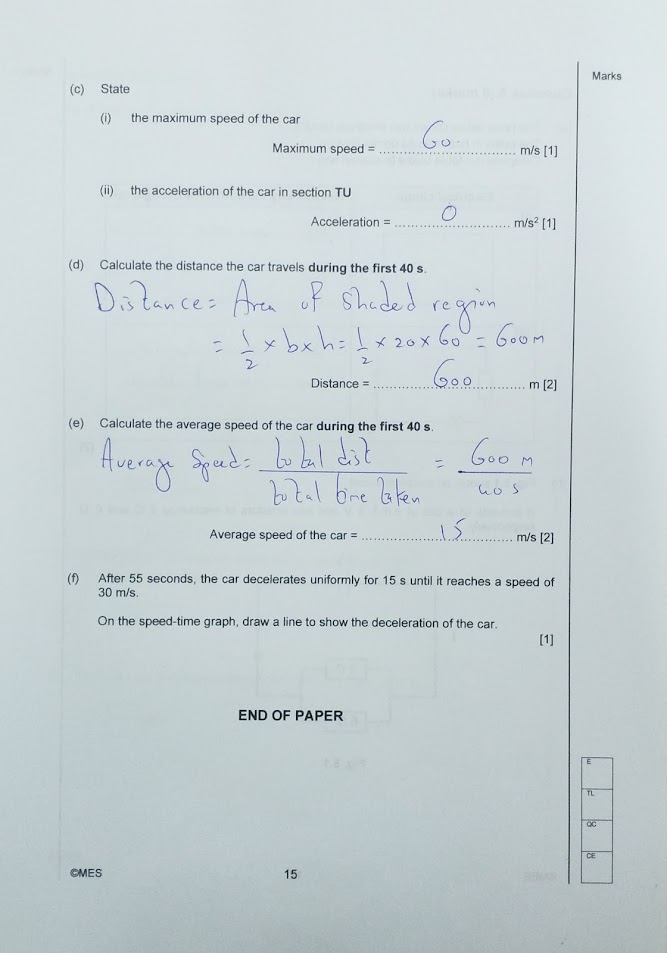 Marks
(c) State
(i) the maximum speed of the car
Maximum speed = 60 m/s [1]
(ii) the acceleration of the car in section TU
Acceleration = 0 m/s² [1]
(d) Calculate the distance the car travels during the first 40 s.
Distance = Area of shaded region
= 1/2 × b × h = 1/2 × 20 × 60 = 600 m
Distance = 600 m [2]
(e) Calculate the average speed of the car during the first 40 s.
Average Speed = total dist / total time taken = 600 m / 40 s
Average speed of the car = 15 m/s [2]
(f) After 55 seconds, the car decelerates uniformly for 15 s until it reaches a speed of
30 m/s.
On the speed-time graph, draw a line to show the deceleration of the car.
[1]
END OF PAPER
E
TL
QC
CE
©MES 15